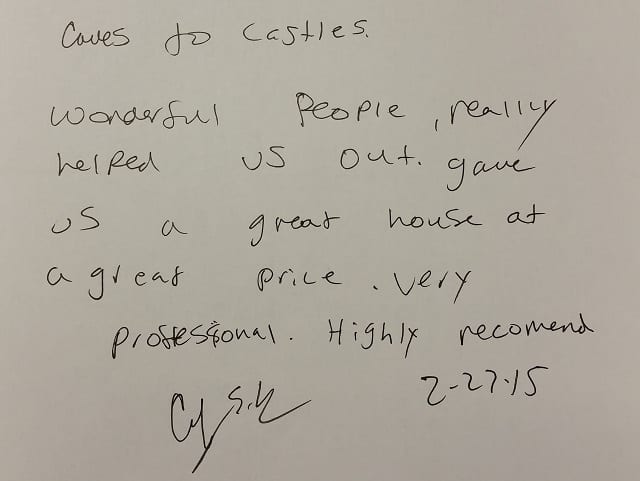 Caves to Castles.
Wonderful People, really
helped us out. gave
us a great house at
a great price. very
professional. Highly recomend
2-27-15